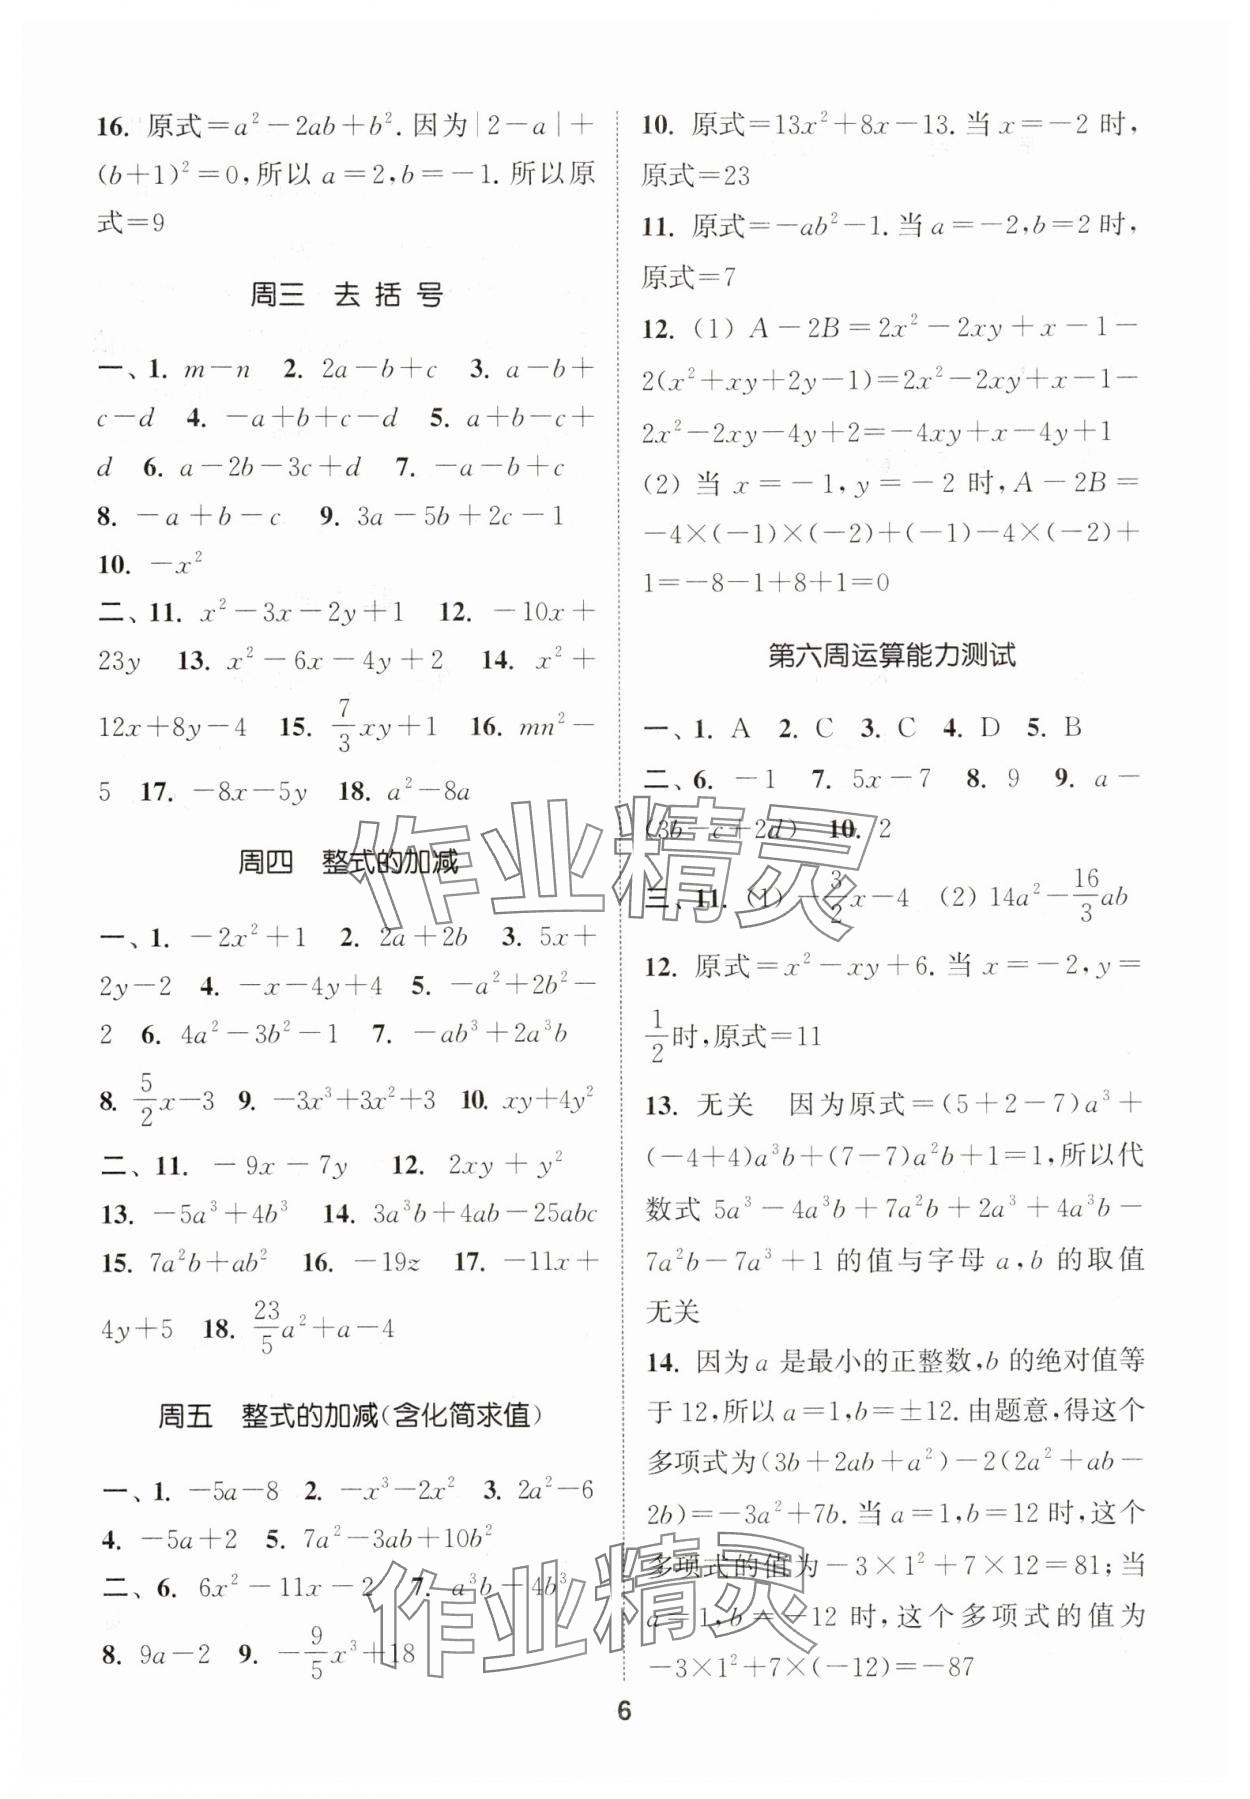 16. 原式=a²-2ab+b².因为|2-a|+
(b+1)²=0,所以 a=2,b=-1.所以原
式=9
周三 去 括 号
一、1. m-n 2. 2a-b+c 3. a-b+
c-d 4. -a+b+c-d 5. a+b-c+
d 6. a-2b-3c+d 7. -a-b+c
8. -a+b-c 9. 3a-5b+2c-1
10. -x²
二、11. x²-3x-2y+1 12. -10x+
23y 13. x²-6x-4y+2 14. x²+
12x+8y-4 15. 7/3xy+1 16. mn²-
5 17. -8x-5y 18. a²-8a
周四 整式的加减
一、1. -2x²+1 2. 2a+2b 3. 5x+
2y-2 4. -x-4y+4 5. -a²+2b²-
2 6. 4a²-3b²-1 7. -ab³+2a³b
8. 5/2x-3 9. -3x³+3x²+3 10. xy+4y²
二、11. -9x-7y 12. 2xy+y²
13. -5a³+4b³ 14. 3a³b+4ab-25abc
15. 7a²b+ab² 16. -19z 17. -11x+
4y+5 18. 23/5a²+a-4
周五 整式的加减(含化简求值)
一、1. -5a-8 2. -x³-2x² 3. 2a²-6
4. -5a+2 5. 7a²-3ab+10b²
二、6. 6x²-11x-2 7. a³b-4b³
8. 9a-2 9. -9/5x³+18
10. 原式=13x²+8x-13.当 x=-2 时,
原式=23
11. 原式=-ab²-1.当 a=-2,b=2 时,
原式=7
12. (1) A-2B=2x²-2xy+x-1-
2(x²+xy+2y-1)=2x²-2xy+x-1-
2x²-2xy-4y+2=-4xy+x-4y+1
(2) 当 x=-1,y=-2 时,A-2B=
-4×(-1)×(-2)+(-1)-4×(-2)+
1=-8-1+8+1=0
第六周运算能力测试
一、1. A 2. C 3. C 4. D 5. B
二、6. -1 7. 5x-7 8. 9 9. a-
(3b-c+2d) 10. 2
三、11. (1) -3/2x-4 (2) 14a²-16/3ab
12. 原式=x²-xy+6.当 x=-2,y=
1/2时,原式=11
13. 无关 因为原式=(5+2-7)a³+
(-4+4)a³b+(7-7)a²b+1=1,所以代
数式 5a³-4a³b+7a²b+2a³+4a³b-
7a²b-7a³+1 的值与字母 a,b 的取值
无关
14. 因为 a 是最小的正整数,b 的绝对值等
于 12,所以 a=1,b=±12.由题意,得这个
多项式为(3b+2ab+a²)-2(2a²+ab-
2b)=-3a²+7b.当 a=1,b=12 时,这个
多项式的值为-3×1²+7×12=81;当
a=1,b=-12 时,这个多项式的值为
-3×1²+7×(-12)=-87
作业精灵
作业精灵
6